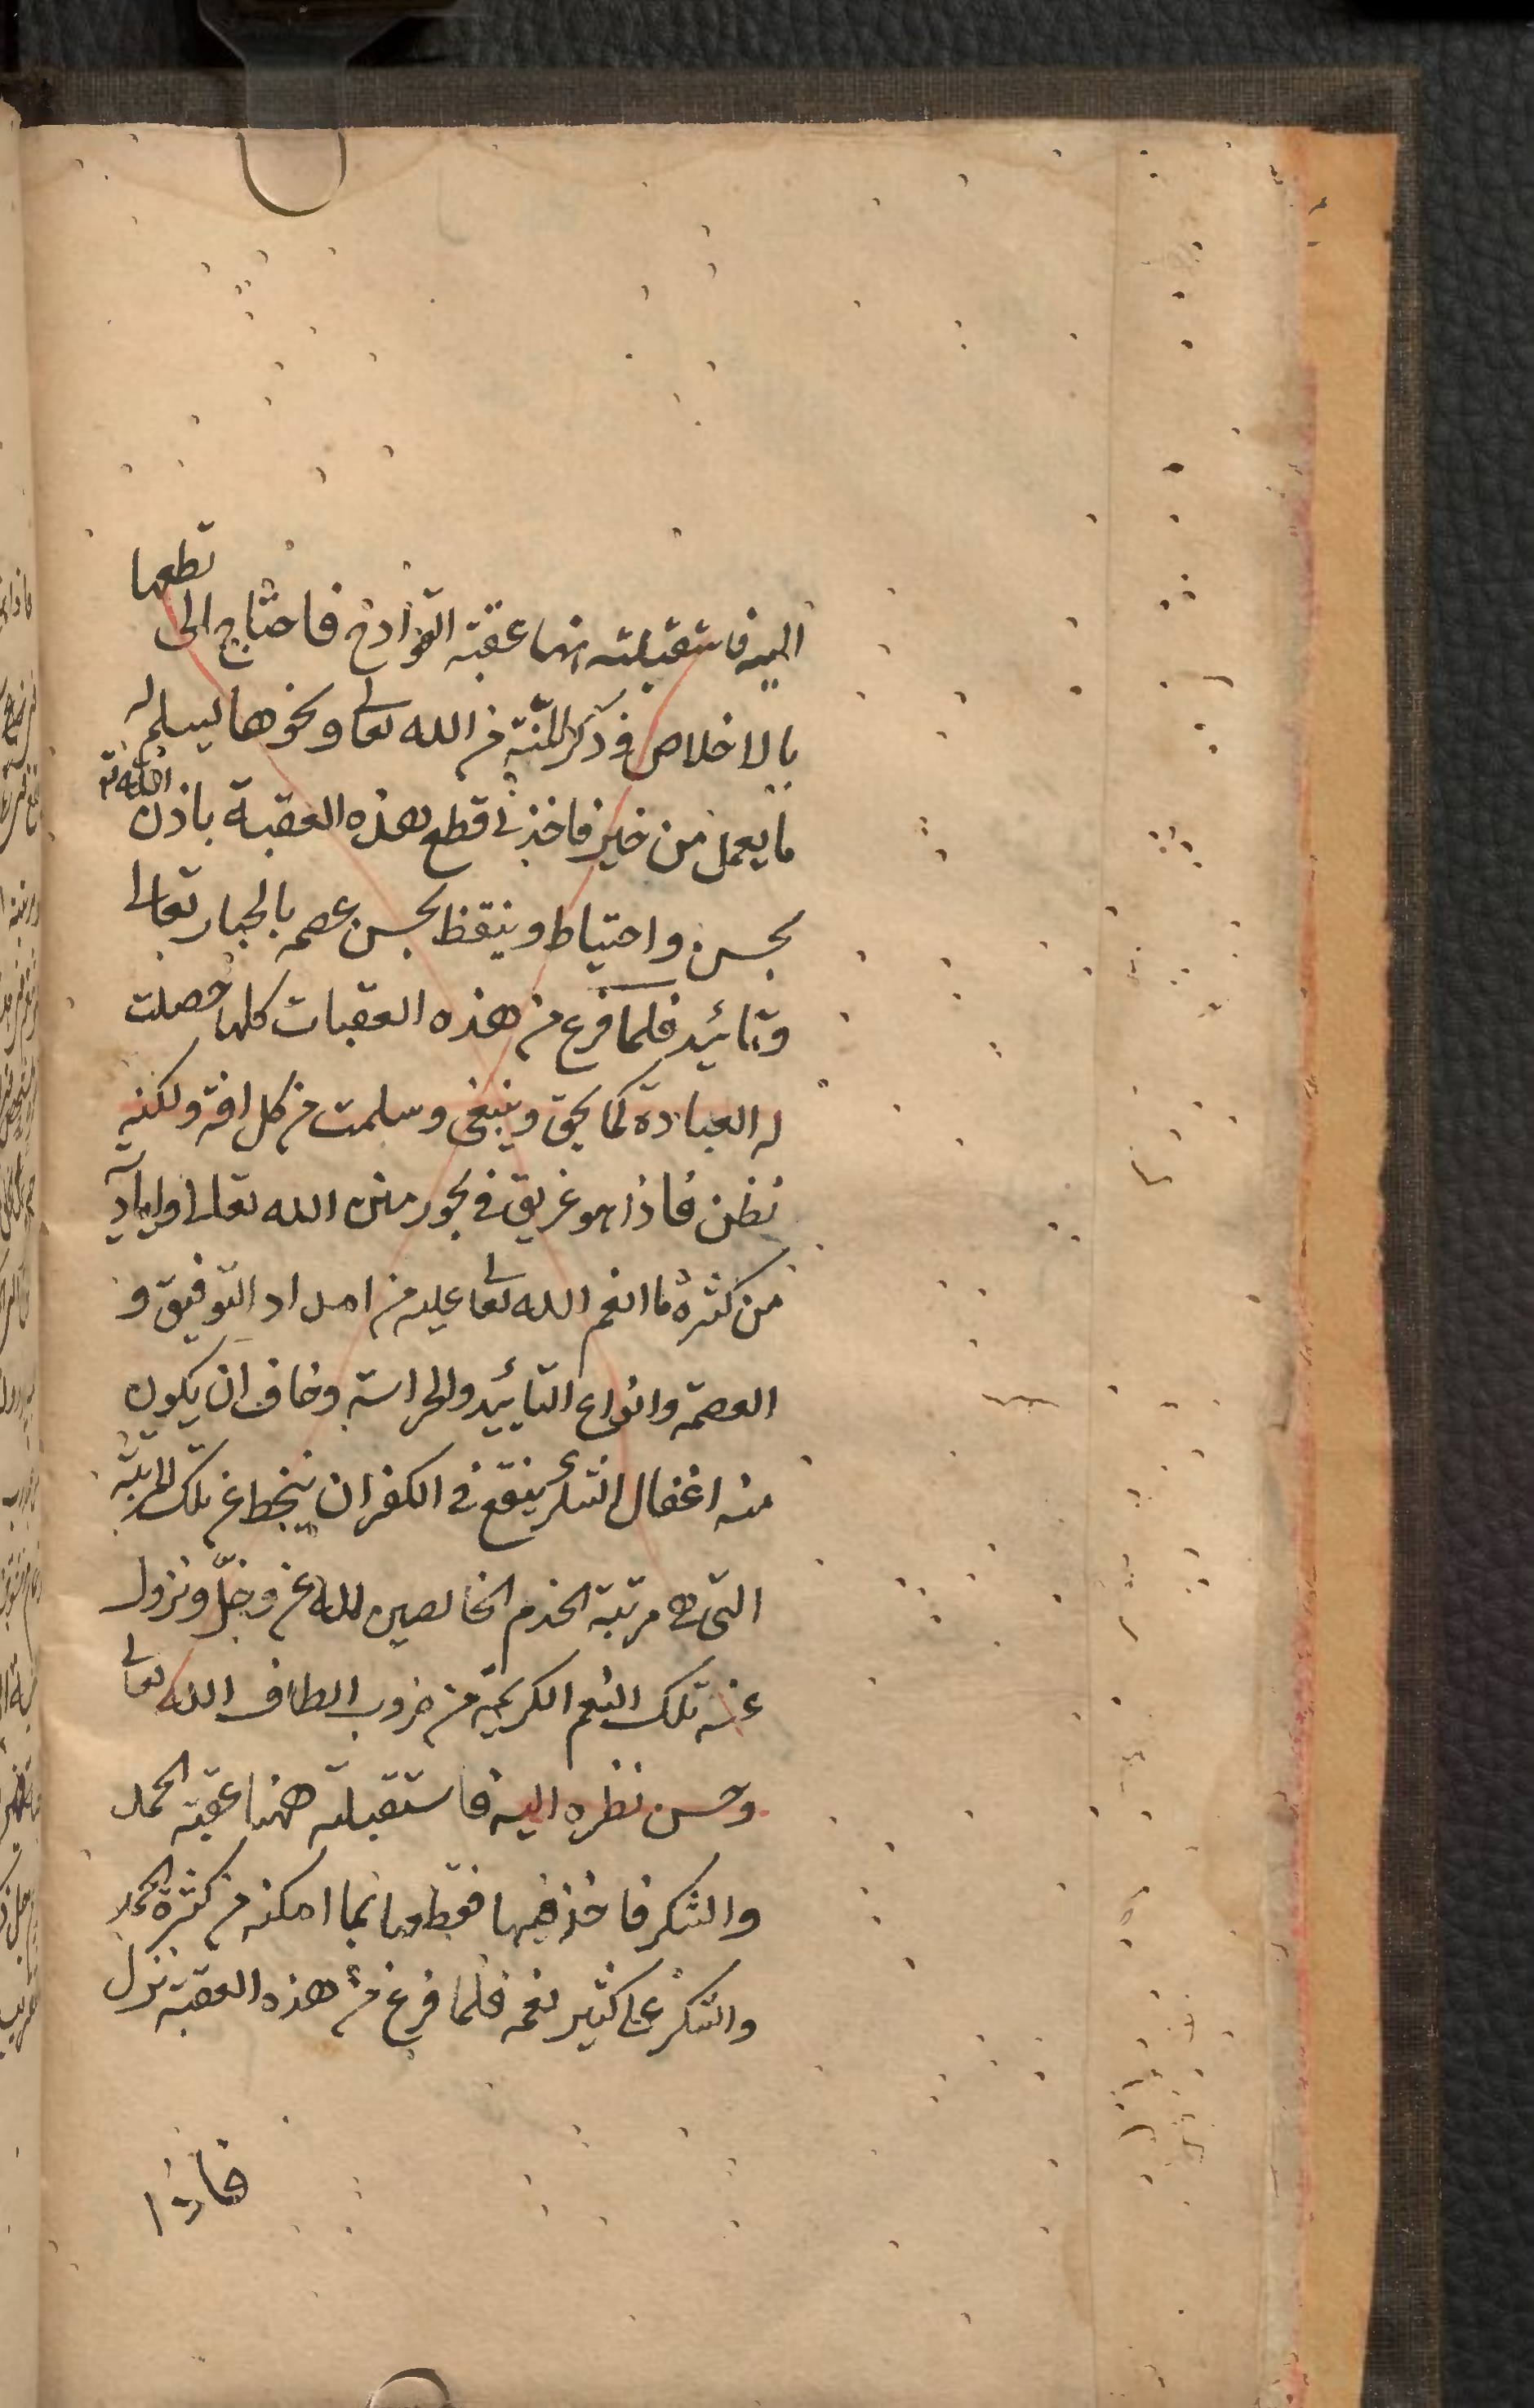 اليه فاستقبلته ههنا عقبة القوادح فاحتاج الى قطعها
بالاخلاص وذكر المنة من الله تعالى ونحوها ليسلم له
ما يعمل من خير فاخذ فى قطع هذه العقبة باذن الله تع
بحسن واحتياط وتيقظ بحسن عصمه بالجبار تعالى
وتائيد فلما فرغ من هذه العقبات كلها حصلت
له العبادة كما يحق وينبغى وسلمت من كل افة ولكنه
نظر فاذا هو غريق فى بحور منن الله تعالى واياد
من كثرة ما انعم الله تعالى عليه من امداد التوفيق و
العصمة وانواع التاييد والحراسة وخاف ان يكون
منه اغفال الشكر فيقع فى الكفران فينحط عن تلك المرتبة
التى هى مرتبة الخدم الخالصين لله عز وجلّ وتزول
عنه تلك النعم الكريمة من ضروب الطاف الله تعالى
وحسن نظره اليه فاستقبلته ههنا عقبة الحمد
والشكر فاخذ فيها فقطعها بما امكنه من كثرة الحمد
والشكر على كثير نعمه فلما فرغ من هذه العقبة نزل
فاذا